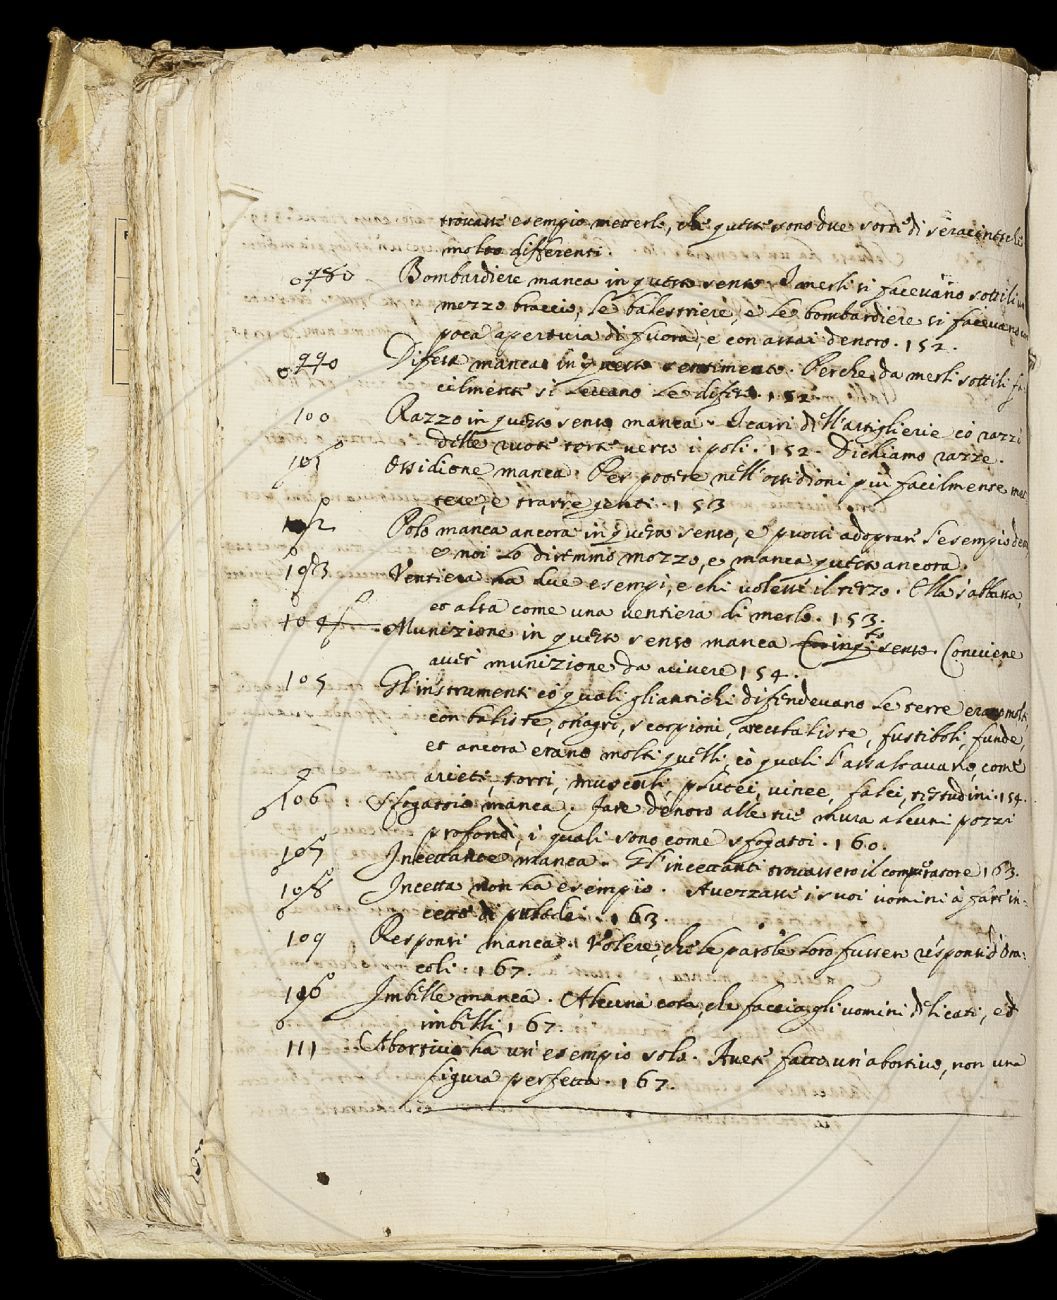 trovasse esempio metterlo, che queste sono due sorte di seracinesche
molto differenti.
98 Bombardiere manca in questo senso. I merli si facevano sottili
mezzo braccio, le balestriere, e le bombardiere si facevano
poca apertura di fuora, e con assai dentro. 152.
99 Difesa manca in questo sentimento. Perche da merli sottili fa-
cilmente si levano le difese. 152.
100 Razzo in questo senso manca. I carri dell'artiglierie co razzi
delle ruote torte verso i poli. 152. Dichiamo razze.
101 Ossidione manca. Per potere nell'ossidioni più facilmente met
tere, e trarre genti. 153
102 Polo manca ancora in questo senso, e puossi adoprar l'esempio
e noi lo diremmo mozzo, e manca questa ancora.
103 Ventiera ha due esempi, e chi volesse il terzo. Ella s'abbassa,
et alza come una ventiera di merlo. 153.
104 Munizione in questo senso manca. Conviene
aver munizione da vivere 154.
105 Gl'instrumenti co' quali gli antichi difendevano le terre erano molti
con baliste, onagri, scorpioni, arcubaliste, fustiboli, funde,
et ancora erano molti quelli, co' quali l'assaltavano, come
arieti, torri, musculi, plutei, vinee, falci, testudini. 154.
106 Sfogatoio manca. Fare dentro alle tue mura alcuni pozzi
profondi, i quali sono come sfogatoi. 160.
107 Incettatore manca. Gl'incettanti trovassero il comperatore 163.
108 Incetta non ha esempio. Avezzasse i suoi uomini à fare in-
cette di 163.
109 Responsi manca. Volere, che le parole loro fussen responsi d'Ora-
coli. 167.
110 Imbelle manca. Alcuna cosa, che faccia gli uomini delicati, ed
imbelli. 167.
111 Abortivo ha un'esempio solo. Aver fatto un'abortivo, non una
figura perfetta. 167.